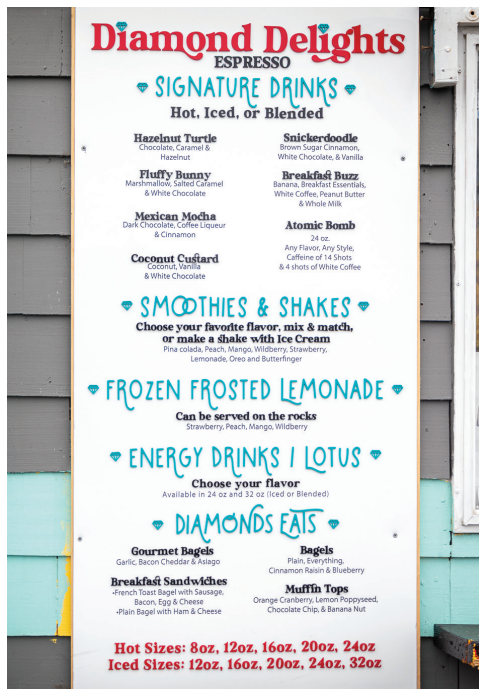 Diamond Delights
ESPRESSO
SIGNATURE DRINKS
Hot, Iced, or Blended
Hazelnut Turtle
Chocolate, Caramel &
Hazelnut
Fluffy Bunny
Marshmallow, Salted Caramel
& White Chocolate
Mexican Mocha
Dark Chocolate, Coffee Liqueur
& Cinnamon
Coconut Custard
Coconut, Vanilla
& White Chocolate
Snickerdoodle
Brown Sugar Cinnamon,
White Chocolate, & Vanilla
Breakfast Buzz
Banana, Breakfast Essentials,
White Coffee, Peanut Butter
& Whole Milk
Atomic Bomb
24 oz.
Any Flavor, Any Style,
Caffeine of 14 Shots
& 4 shots of White Coffee
SMOOTHIES & SHAKES
Choose your favorite flavor, mix & match,
or make a shake with Ice Cream
Pina colada, Peach, Mango, Wildberry, Strawberry,
Lemonade, Oreo and Butterfinger
FROZEN FROSTED LEMONADE
Can be served on the rocks
Strawberry, Peach, Mango, Wildberry
ENERGY DRINKS | LOTUS
Choose your flavor
Available in 24 oz and 32 oz (Iced or Blended)
DIAMONDS EATS
Gourmet Bagels
Garlic, Bacon Cheddar & Asiago
Breakfast Sandwiches
•French Toast Bagel with Sausage,
Bacon, Egg & Cheese
•Plain Bagel with Ham & Cheese
Bagels
Plain, Everything,
Cinnamon Raisin & Blueberry
Muffin Tops
Orange Cranberry, Lemon Poppyseed,
Chocolate Chip, & Banana Nut
Hot Sizes: 8oz, 12oz, 16oz, 20oz, 24oz
Iced Sizes: 12oz, 16oz, 20oz, 24oz, 32oz